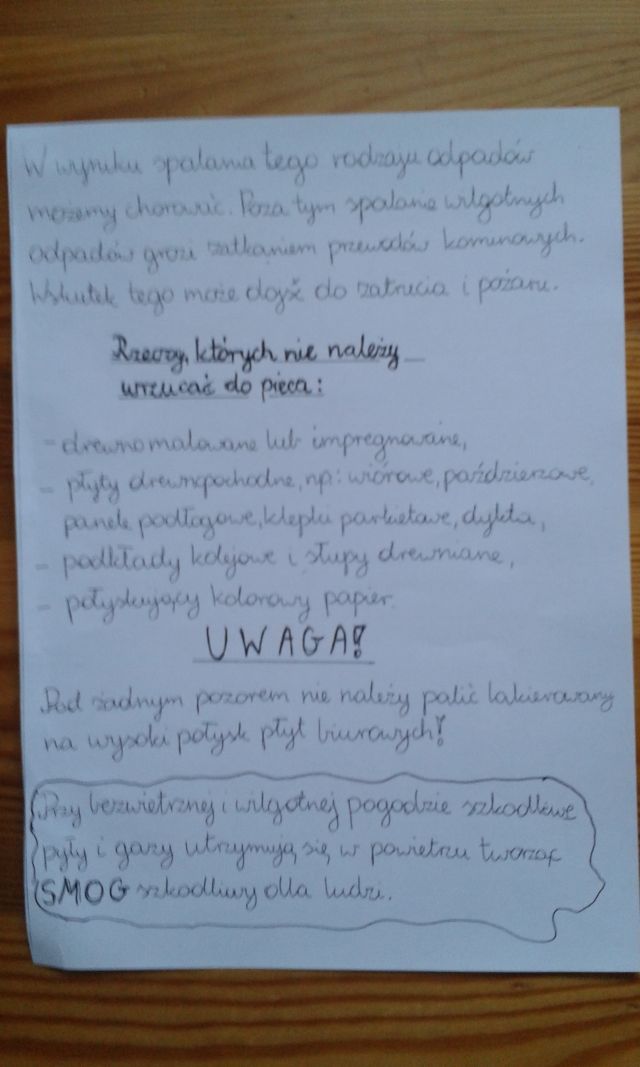 W wyniku spalania tego rodzaju odpadów
możemy chorować. Poza tym spalanie wilgotnych
odpadów grozi zatkaniem przewodów kominowych.
Wskutek tego może dojść do zatrucia i pożaru.
Rzeczy, których nie należy
wrzucać do pieca:
- drewno malowane lub impregnowane,
- płyty drewnopochodne, np: wiórowe, paździerzowe,
panele podłogowe, klepki parkietowe, dykta,
- podkłady kolejowe i słupy drewniane,
- połyskujący kolorowy papier.
UWAGA!
Pod żadnym pozorem nie należy palić lakierowany
na wysoki połysk płyt biurowych!
Przy bezwietrznej i wilgotnej pogodzie szkodliwe
pyły i gazy utrzymują się w powietrzu tworząc
SMOG szkodliwy dla ludzi.